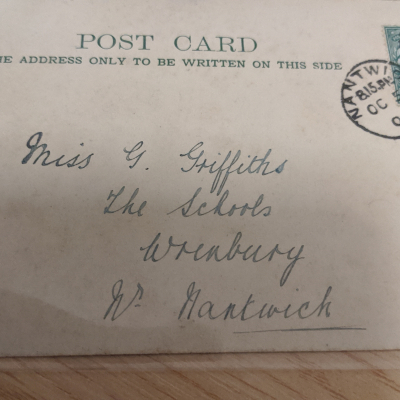 POST CARD
E ADDRESS ONLY TO BE WRITTEN ON THIS SIDE
NANTWI
8.15 PM
OC
Miss G. Griffiths
The Schools
Wrenbury
Nr Nantwich